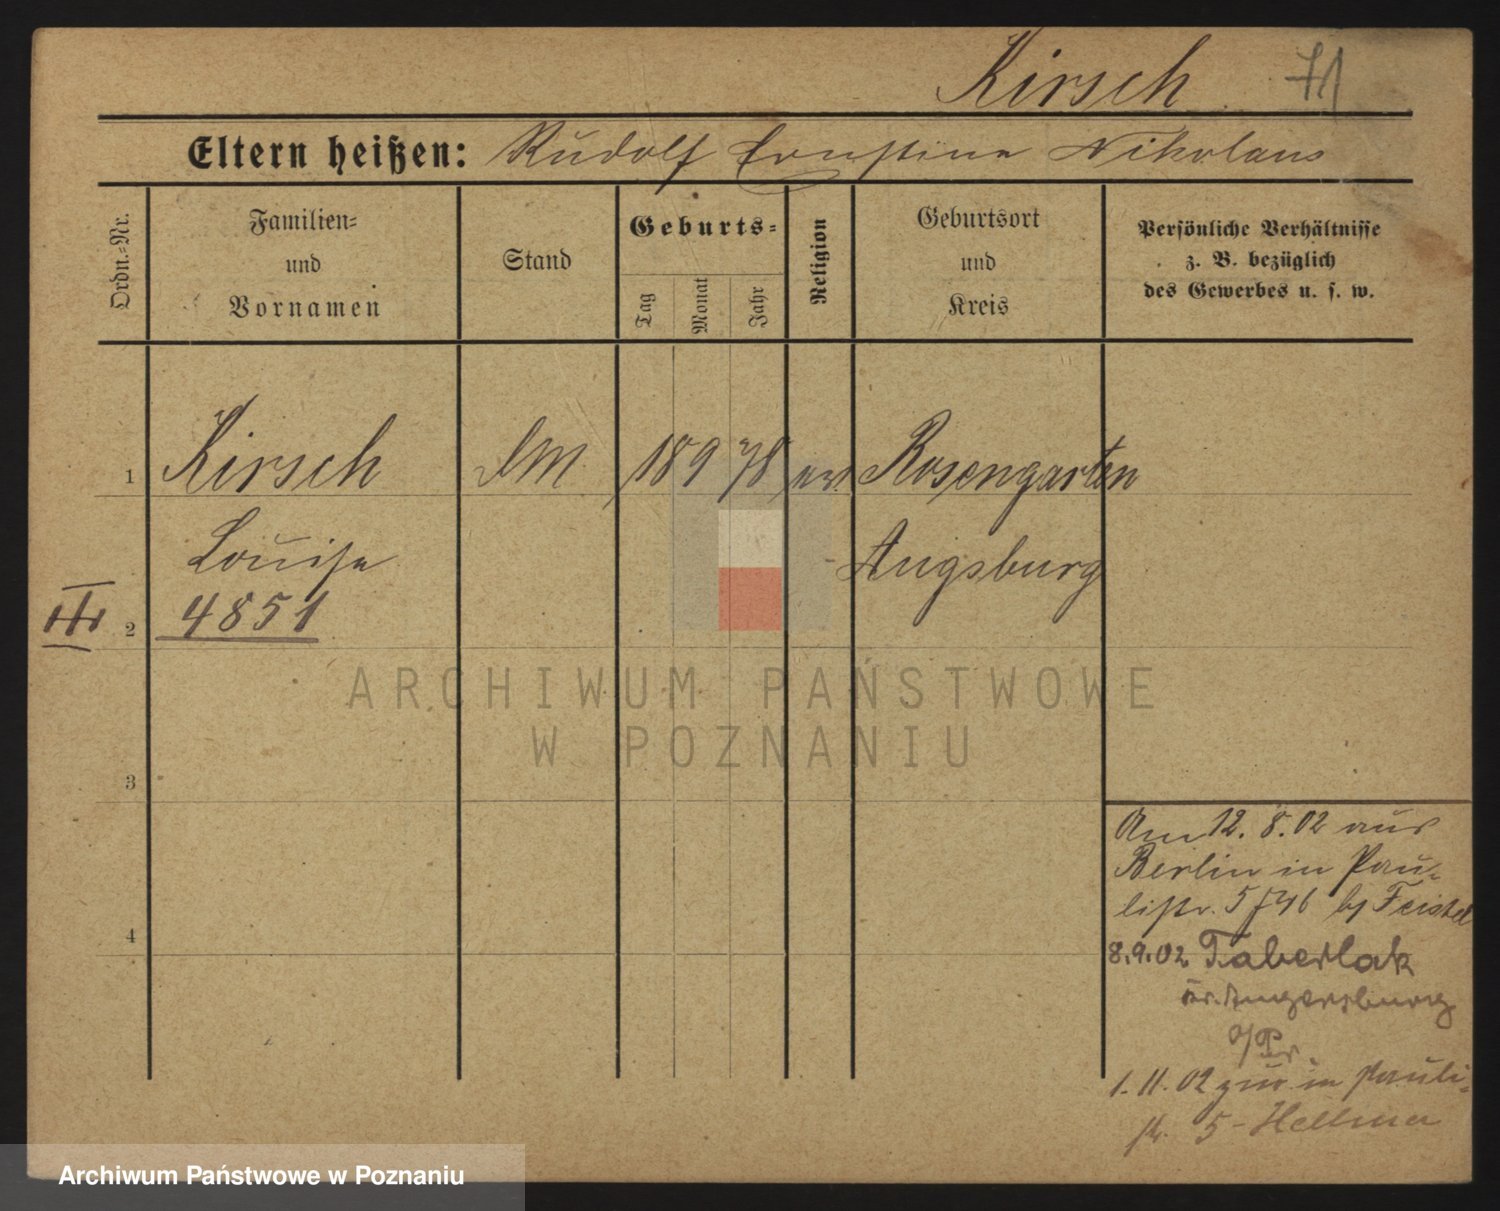 Kirsch 71
Eltern heißen: Rudolf Ernstine Nikolaus
Ordn.-Nr.
Familien-
und
Vornamen
Stand
Geburts-
Tag
Monat
Jahr
Religion
Geburtsort
und
Kreis
Persönliche Verhältnisse
z. B. bezüglich
des Gewerbes u. s. w.
1 Kirsch DM 18 9 78 ev. Rosengarten
Louise Augsburg
III 2 4851
3
4
Am 12. 8. 02 aus
Berlin in Pau-
listr. 5 b/ Feistel
8.9.02 Taberlak
Kr. Angersburg
o/Pr.
1. 11. 02 zur. in Pauli-
str. 5 - Hellmer
ARCHIWUM PAŃSTWOWE
W POZNANIU
Archiwum Państwowe w Poznaniu